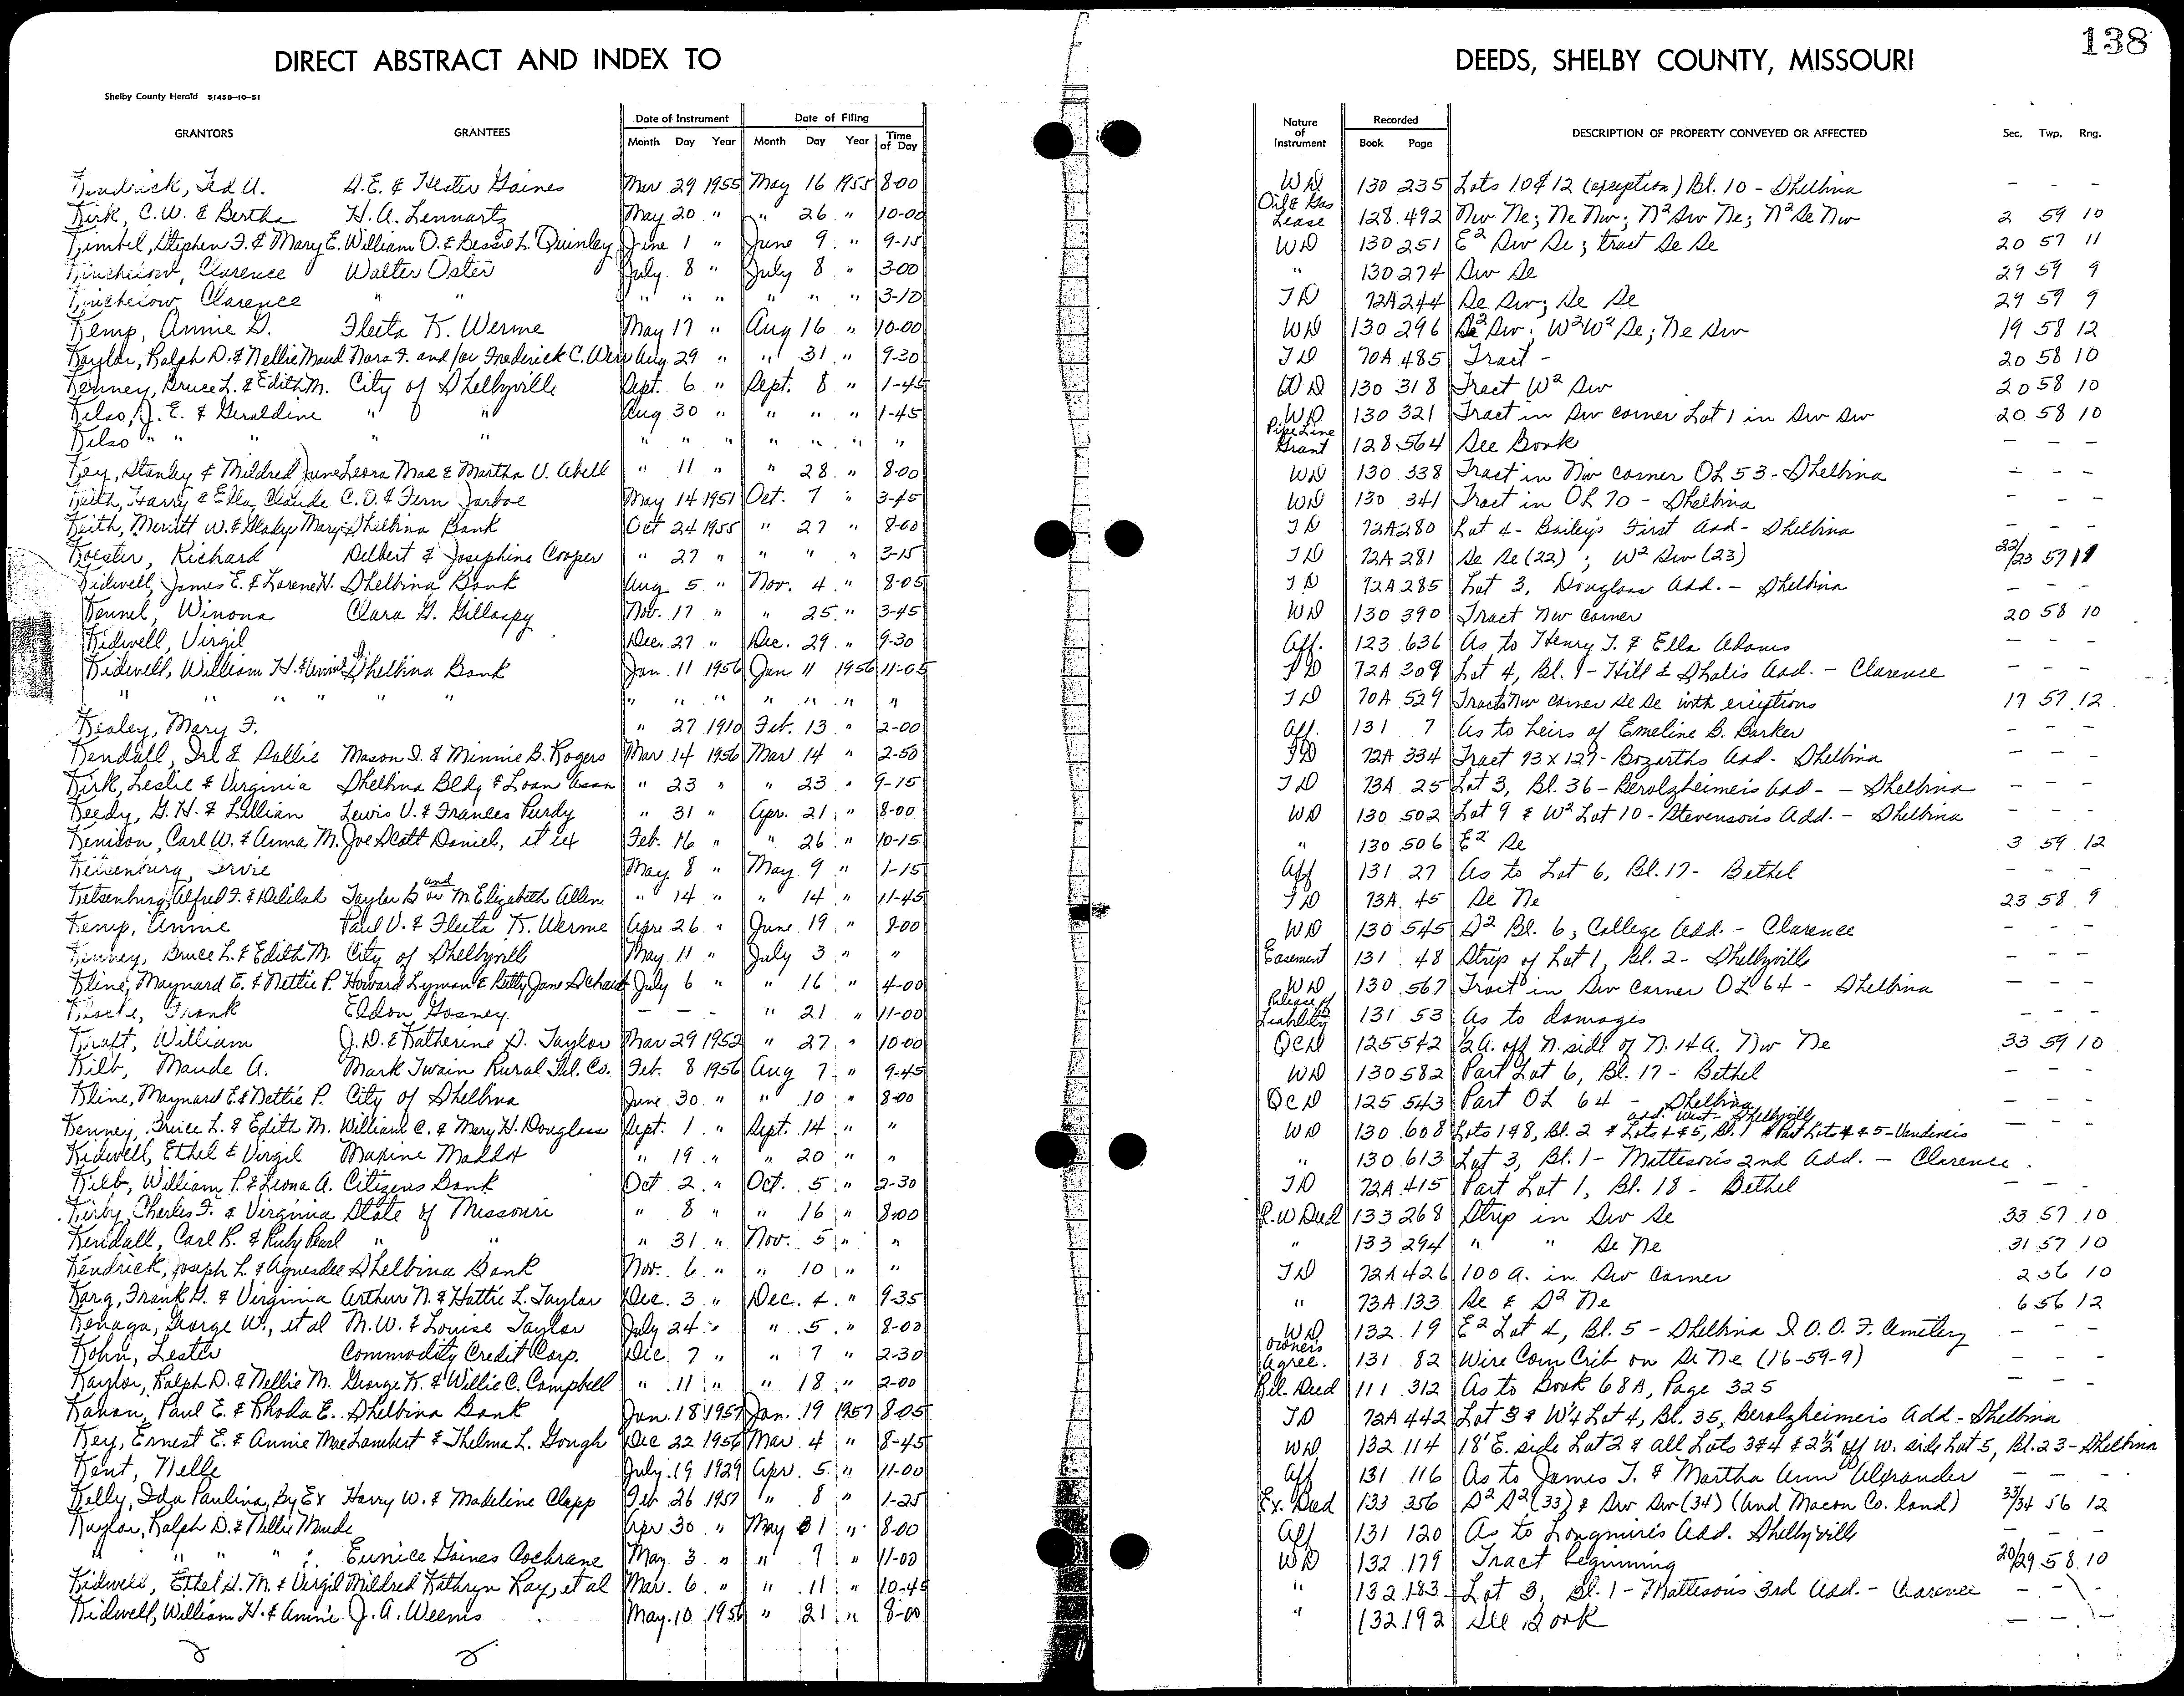 138
DIRECT ABSTRACT AND INDEX TO DEEDS, SHELBY COUNTY, MISSOURI
Shelby County Herald 51458-10-51
GRANTORS GRANTEES Date of Instrument Date of Filing Nature of Instrument Recorded DESCRIPTION OF PROPERTY CONVEYED OR AFFECTED Sec. Twp. Rng.
Month Day Year Month Day Year Time of Day Book Page
Kendrick, Ted A. D.E. & Hester Gaines Mar 29 1955 May 16 1955 8-00 WD 130 235 Lots 10 & 12 (exception) Bl. 10 - Shelbina - - -
Kirk, C.W. & Bertha H.A. Lennartz May 20 " " 26 " 10-00 Oil & Gas Lease 128 492 Nw Ne; Ne Nw; N² Sw Ne; N² Se Nw 2 59 10
Kimbel, Stephen F. & Mary E. William O. & Bessie L. Quinley June 1 " June 9 " 9-15 WD 130 251 E² Sw Se; tract Se Se 20 57 11
Kinchelow, Clarence Walter Oster July 8 " July 8 " 3-00 " 130 274 Sw Se 29 59 9
Kinchelow Clarence " " " " " " " " 3-10 TD 72A 244 Se Sw; Se Se 29 59 9
Kemp, Annie G. Fleeta K. Werme May 17 " Aug 16 " 10-00 WD 130 296 Sw; W²W² Se; Ne Sw 19 58 12
Kaylor, Ralph D. & Nellie Maud Nora F. and/or Frederick C. Aug. 29 " " 31 " 9-30 TD 70A 485 Tract - 20 58 10
Kenney, Bruce L. & Edith M. City of Shelbyville Sept. 6 " Sept. 8 " 1-45 WD 130 318 Tract W² Sw 20 58 10
Kelso, J.E. & Geraldine " " Aug 30 " " " " 1-45 WD 130 321 Tract in Sw corner Lot 1 in Sw Sw 20 58 10
Kelso " " " " " " " " " " " " Pipe Line Grant 128 564 See Book - - -
Key, Stanley & Mildred June Leora Mae & Martha V. Abell " 11 " " 28 " 8-00 WD 130 338 Tract in Nw corner OL 53 - Shelbina - - -
Keith, Harry & Ella Claude C.V. & Fern Jarboe May 14 1951 Oct. 7 " 3-45 WD 130 341 Tract in OL 70 - Shelbina - - -
Keith, Merritt W. & Gladys Mary Shelbina Bank Oct 24 1955 " 27 " 8-00 TD 72A 280 Lot 4 - Bailey's First Add - Shelbina - - -
Koester, Richard Delbert & Josephine Cooper " 27 " " " " 3-15 TD 72A 281 Se Se (22); W² Sw (23) 22/23 57 11
Kidwell, James E. & Larene H. Shelbina Bank Aug 5 " Nov. 4 " 8-05 TD 72A 285 Lot 3, Douglass Add. - Shelbina - -
Kennel, Winona Clara G. Gillaspy Nov. 17 " " 25 " 3-45 WD 130 390 Tract Nw corner 20 58 10
Kidwell, Virgil Dec. 27 " Dec. 29 " 9-30 Aff. 123 636 As to Henry T. & Ella Adams - - -
Kidwell, William H. & Annie Shelbina Bank Jan 11 1956 Jan 11 1956 11-05 TD 72A 309 Lot 4, Bl. 9 - Hill & Shalis Add. - Clarence - - -
" " " " " " " " " " " " TD 70A 529 Tracts Nw corner Se Se with exceptions 17 57 12
Kealey, Mary F. " 27 1910 Feb. 13 " 2-00 Aff. 131 7 As to heirs of Emeline B. Barker - - -
Kendall, Irl & Dollie Mason I. & Minnie B. Rogers Mar 14 1956 Mar 14 " 2-50 TD 72A 334 Tract 93 x 127 - Bozarths Add - Shelbina - - -
Kirk, Leslie & Virginia Shelbina Bldg & Loan Assn " 23 " " 23 " 9-15 TD 73A 25 Lot 3, Bl. 36 - Berolzheimer's Add - - Shelbina - - -
Keedy, G.H. & Lillian Lewis V. & Frances Purdy " 31 " Apr. 21 " 8-00 WD 130 502 Lot 9 & W² Lot 10 - Stevenson's Add. - Shelbina - - -
Kenison, Carl W. & Anna M. Joe Scott Daniel, et ux Feb. 16 " " 26 " 10-15 " 130 506 E² Se 3 59 12
Keisenburg, Irvie May 8 " May 9 " 1-15 Aff 131 27 As to Lot 6, Bl. 17 - Bethel - - -
Keisenburg, Alfred F. & Delilah Taylor B and or M. Elizabeth Allen " 14 " " 14 " 11-45 TD 73A 45 Se Ne 23 58 9
Kemp, Annie Paul V. & Fleeta K. Werme Apr 26 " June 19 " 8-00 WD 130 545 S² Bl. 6; College Add. - Clarence - - -
Kenney, Bruce L. & Edith M. City of Shelbyville May. 11 " July 3 " " Easement 131 48 Strip of Lot 1, Bl. 2 - Shelbyville - - -
Kline, Maynard E. & Nettie P. Howard Lyman & Betty Jane July 6 " " 16 " 4-00 WD 130 567 Tract in Sw corner OL 64 - Shelbina - - -
Frank Eldon Gosney - - - " 21 " 11-00 Release of Liability 131 53 As to damages - - -
Kraft, William J.D. & Katherine D. Taylor Mar 29 1952 " 27 " 10-00 QCD 125 542 ½ A. off N. side of N. 14 A. Nw Ne 33 59 10
Kilb, Maude A. Mark Twain Rural Tel. Co. Feb. 8 1956 Aug 7 " 9-45 WD 130 582 Part Lot 6, Bl. 17 - Bethel - - -
Kline, Maynard E & Nettie P. City of Shelbina June 30 " " 10 " 8-00 QCD 125 543 Part OL 64 - Shelbina - - -
Kenney, Bruce L. & Edith M. William C. & Mary H. Douglass Sept. 1 " Sept. 14 " " WD 130 608 Lots 1 & 8, Bl. 2 & Lots 4 & 5, Bl. 1 & Part Lots 4 & 5 - Vandiver's add. West - Shelbyville - - -
Kidwell, Ethel & Virgil Maxine Maddox " 19 " " 20 " " " 130 613 Lot 3, Bl. 1 - Matteson's 2nd Add. - Clarence
Kilb, William P. & Leona A. Citizens Bank Oct 2 " Oct. 5 " 2-30 TD 72A 415 Part Lot 1, Bl. 18 - Bethel - - -
Kirby, Charles F. & Virginia State of Missouri " 8 " " 16 " 8:00 R.W Deed 133 268 Strip in Sw Se 33 57 10
Kendall, Carl R. & Ruby Pearl " " " 31 " Nov. 5 " " " 133 294 " " Se Ne 31 57 10
Kendrick, Joseph L. & Agnesdee Shelbina Bank Nov. 6 " " 10 " " TD 72A 426 100 A. in Sw Corner 2 56 10
Karg, Frank G. & Virginia Arthur N. & Hattie L. Taylor Dec. 3 " Dec. 4 " 9-35 " 73A 133 Se & S² Ne 6 56 12
Kenaga, George W., et al M.W. & Louise Taylor July 24 " " 5 " 8-00 WD 132 19 E² Lot 4, Bl. 5 - Shelbina I.O.O.F. Cemetery - - -
Kohn, Lester Commodity Credit Corp. Dec 7 " " 7 " 2-30 Owners Agree. 131 82 Wire Corn Crib on Se Ne (16-59-9) - - -
Kaylor, Ralph D. & Nellie M. George K. & Willie C. Campbell " 11 " " 18 " 2-00 Rel. Deed 111 312 As to Book 68A, Page 325 - - -
Paul E. & Rhoda E. Shelbina Bank Jan. 18 1957 Jan. 19 1957 8-05 TD 72A 442 Lot 3 & W¼ Lot 4, Bl. 35, Berolzheimer's Add - Shelbina
Key, Ernest E. & Annie Mae Lambert & Thelma L. Gough Dec 22 1956 Mar 4 " 8-45 WD 132 114 18' E. side Lot 2 & all Lots 3 & 4 & 2½' off W. side Lot 5, Bl. 23 - Shelbina
Kent, Nelle July 19 1929 Apr. 5 " 11-00 Aff 131 116 As to James T. & Martha Ann Alexander - - -
Kelly, Ida Paulina, By Ex Harry W. & Madeline Clapp Feb 26 1957 " 8 " 1-25 Ex. Deed 133 356 S² S² (33) & Sw Sw (34) (And Macon Co. land) 33/34 56 12
Kaylor, Ralph D. & Nellie Maude Apr 30 " May 1 " 8-00 Aff 131 120 As to Longmire's Add. Shelbyville - - -
" " " " " Eunice Gaines Cochrane May 3 " " 7 " 11-00 WD 132 179 Tract beginning 20/29 58 10
Kidwell, Ethel D.M. & Virgil Mildred Kathryn Ray, et al Mar. 6 " " 11 " 10-45 " 132 183 Lot 3, Bl. 1 - Mattison's 3rd Add. - Clarence - - -
Kidwell, William H. & Annie J.A. Weems May 10 1956 " 21 " 8-00 " 132 192 See Book - - -